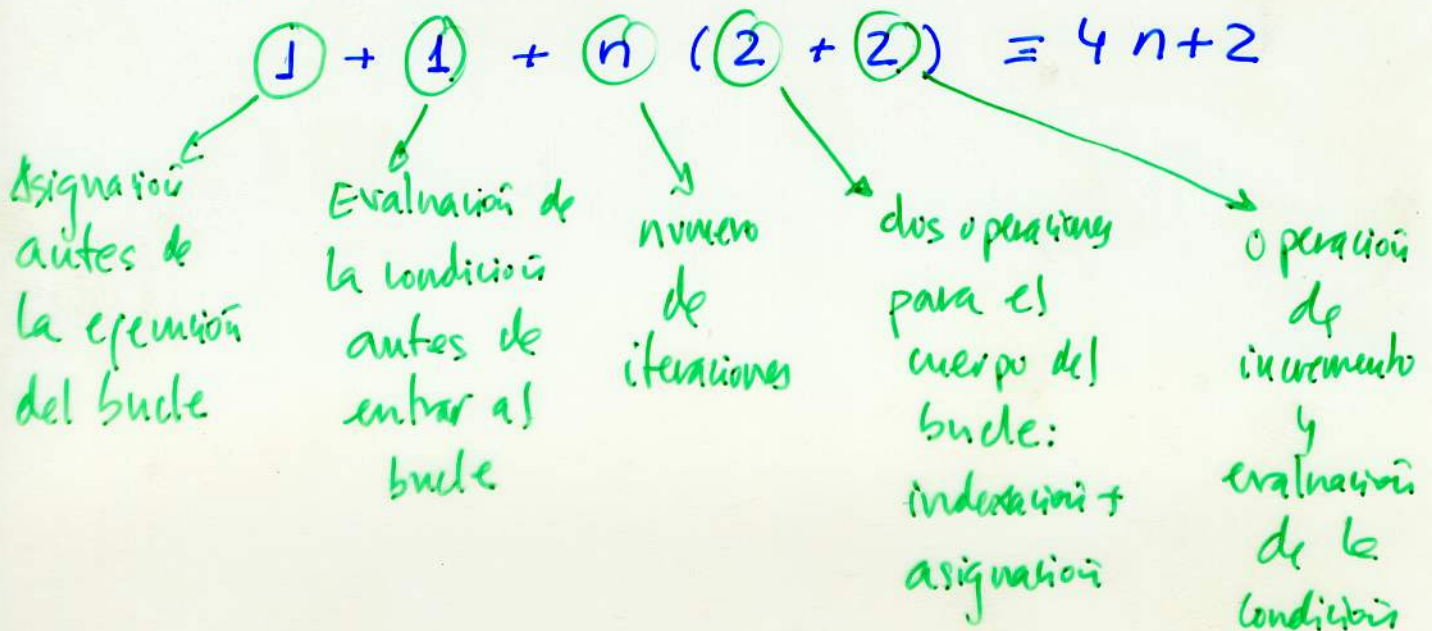 1 + 1 + n (2 + 2) = 4 n + 2
Asignación
antes de
la ejecución
del bucle
Evaluación de
la condición
antes de
entrar al
bucle
numero
de
iteraciones
dos operaciones
para el
cuerpo del
bucle:
indexación +
asignación
operación
de
incremento
y
evaluación
de la
condición